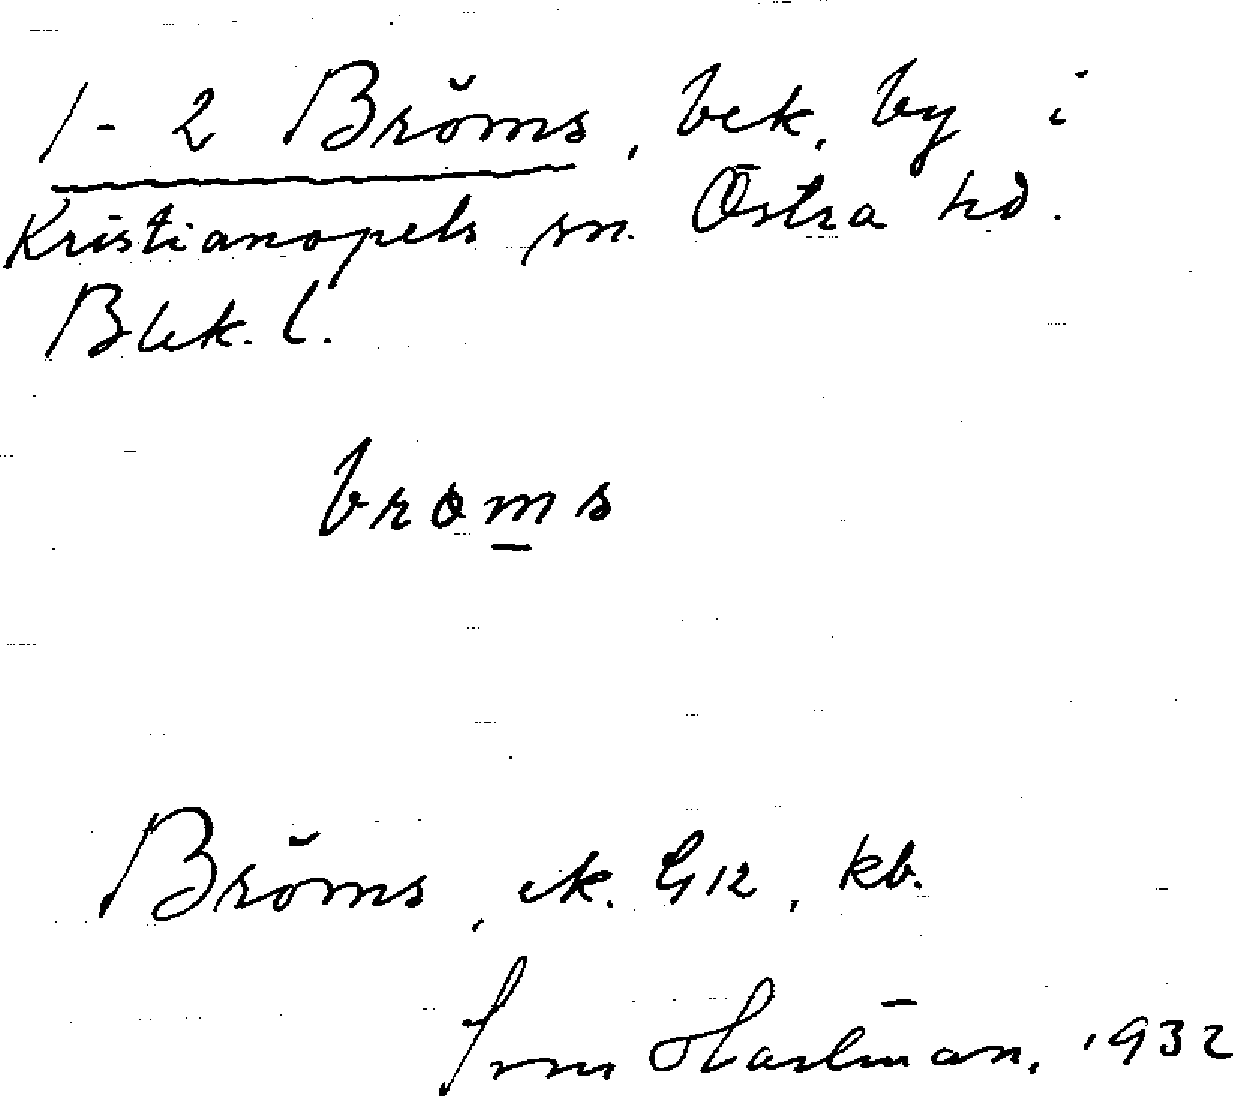 1-2 Bröms, bek. by i
Kristianopels sn. Östra hd.
Blek. l.
broms
Bröms, ek. G12, kb.
Hartman, 1932